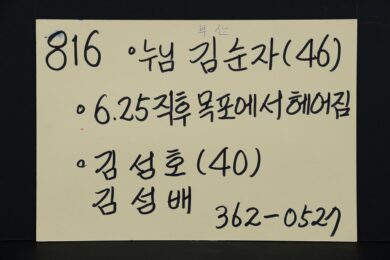 부산
816 ◦누님 김순자(46)
◦6.25직후 목포에서 헤어짐
◦김성호(40)
김성배
362-0527